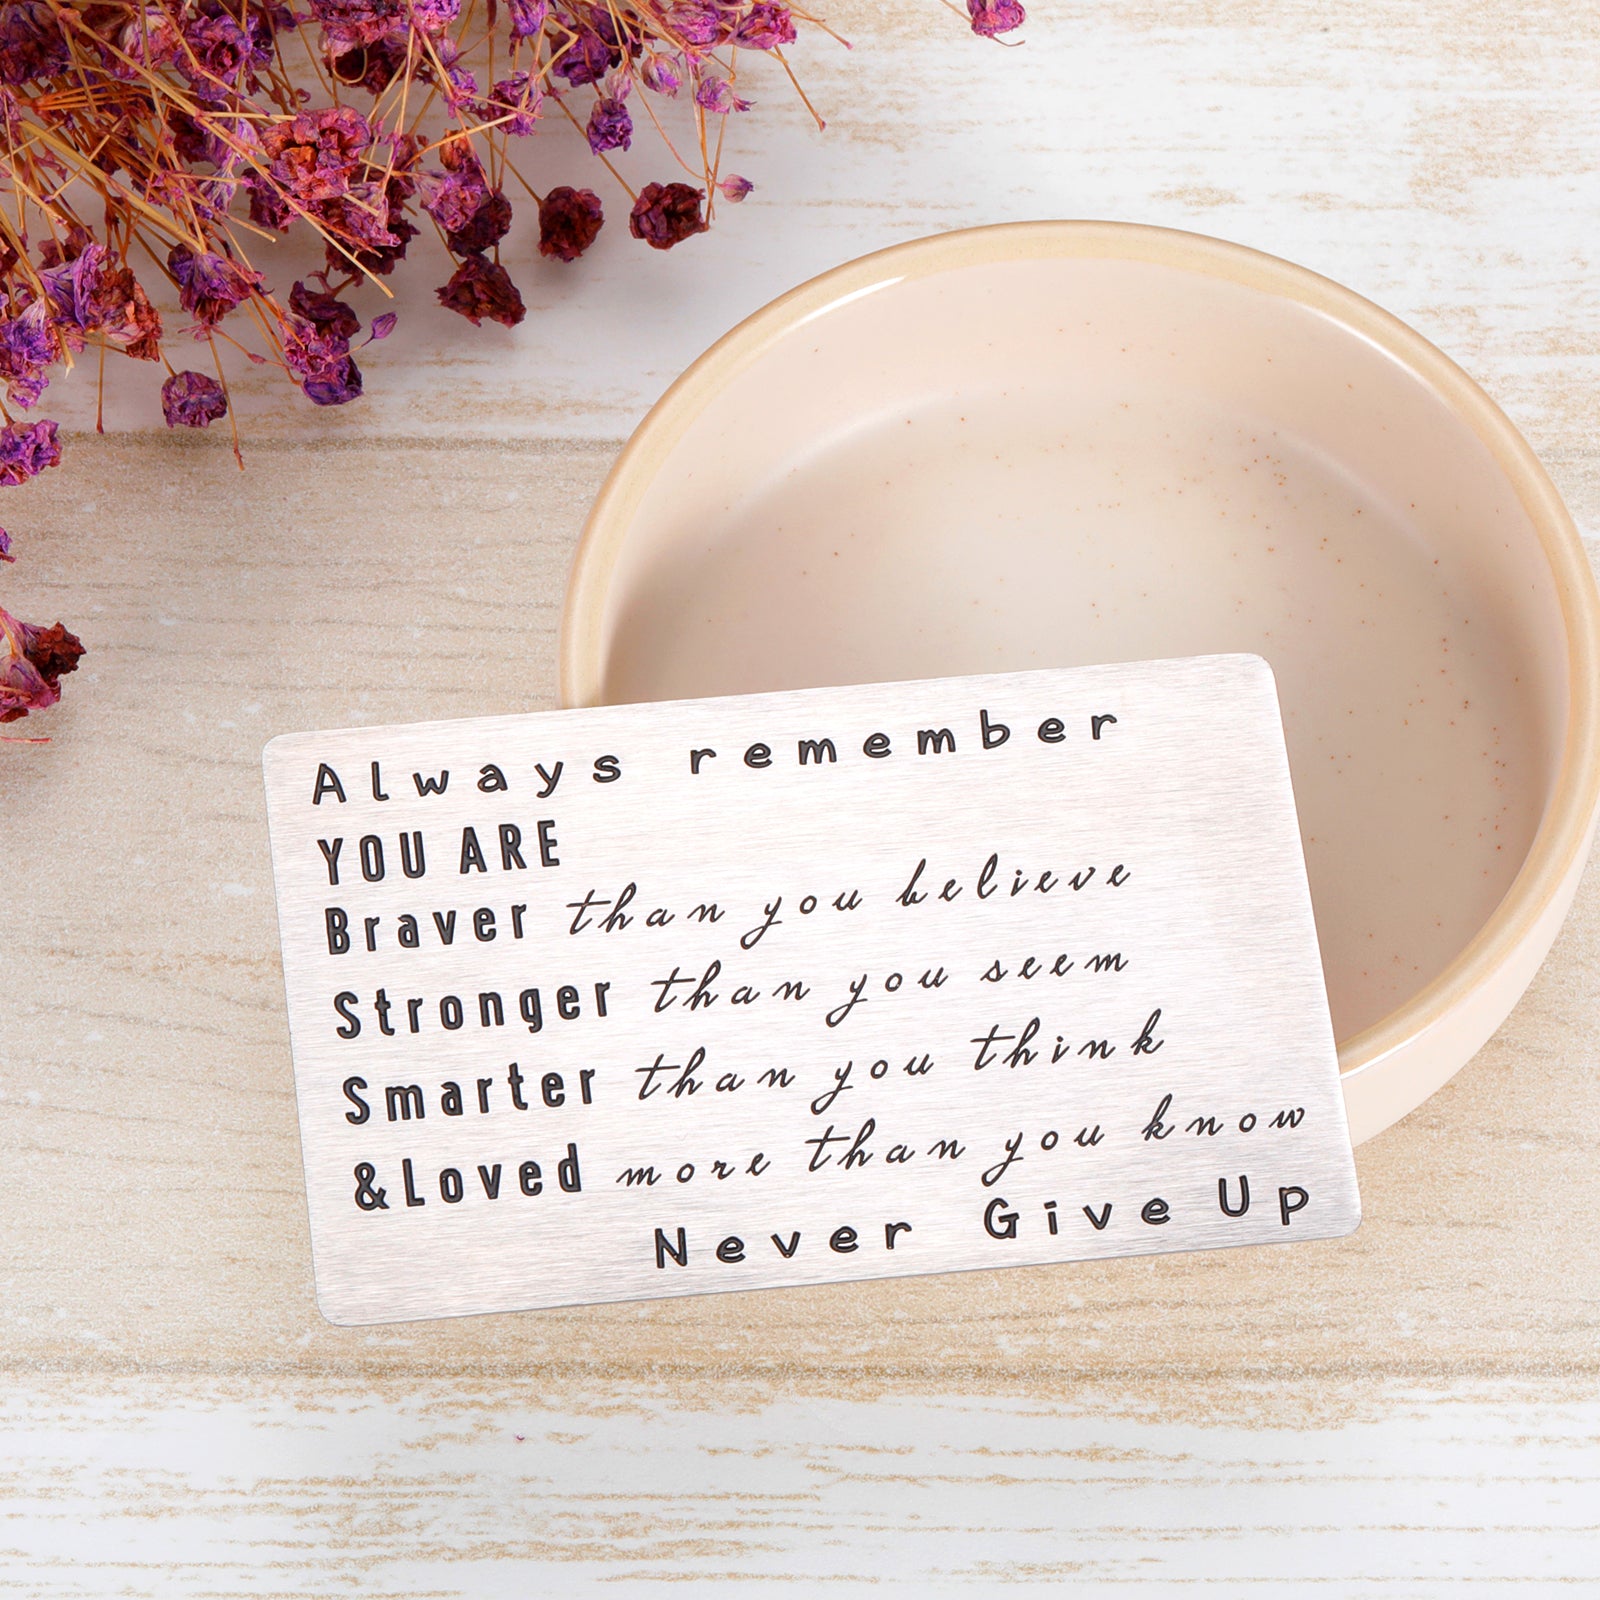 Always remember
YOU ARE
Braver than you believe
Stronger than you seem
Smarter than you think
&Loved more than you know
Never Give Up